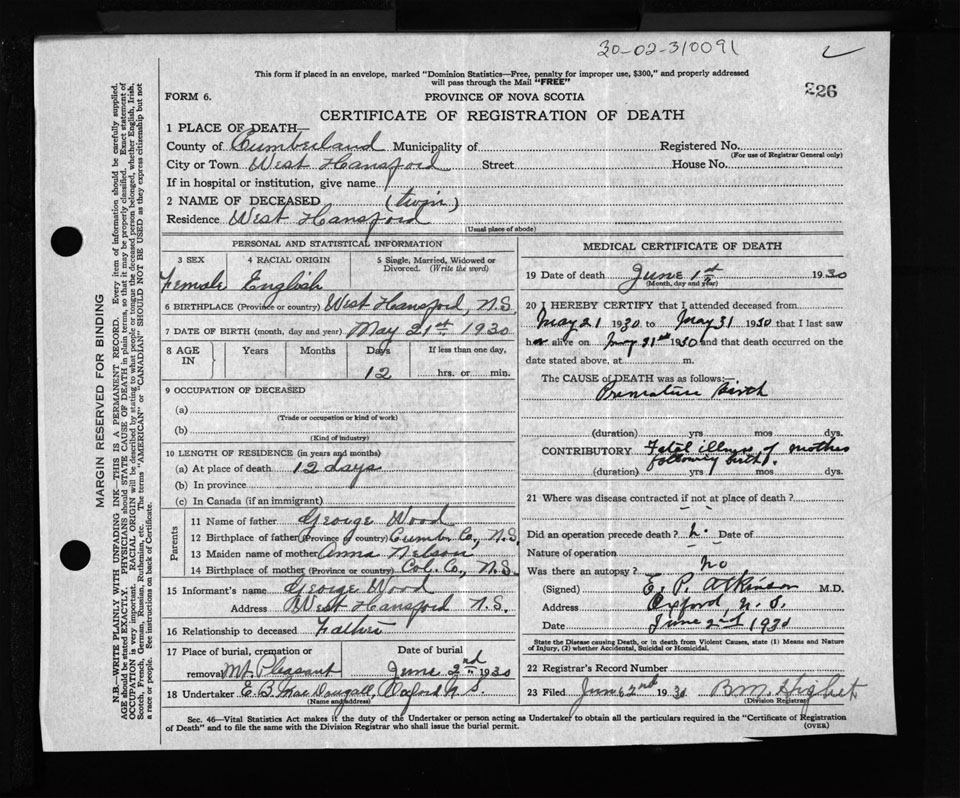 30-02-310091
This form if placed in an envelope, marked "Dominion Statistics—Free, penalty for improper use, $300," and properly addressed
will pass through the Mail "FREE"
£26
FORM 6.
PROVINCE OF NOVA SCOTIA
CERTIFICATE OF REGISTRATION OF DEATH
1 PLACE OF DEATH—
County of Cumberland Municipality of Registered No.
(For use of Registrar General only)
City or Town West Hansford Street House No.
If in hospital or institution, give name
2 NAME OF DECEASED (twin)
Residence West Hansford
(Usual place of abode)
PERSONAL AND STATISTICAL INFORMATION
3 SEX
Female
4 RACIAL ORIGIN
English
5 Single, Married, Widowed or
Divorced. (Write the word)
6 BIRTHPLACE (Province or country) West Hansford, N.S.
7 DATE OF BIRTH (month, day and year) May 21st 1930
8 AGE
IN
Years Months Days If less than one day,
12 hrs. or min.
9 OCCUPATION OF DECEASED
(a)
(Trade or occupation or kind of work)
(b)
(Kind of industry)
10 LENGTH OF RESIDENCE (in years and months)
(a) At place of death 12 days
(b) In province
(c) In Canada (if an immigrant)
Parents
11 Name of father George Wood
12 Birthplace of father (Province or country) Cumber. Co., N.S.
13 Maiden name of mother Anna Nelson
14 Birthplace of mother (Province or country) Col. Co., N.S.
15 Informant's name George Wood
Address West Hansford N.S.
16 Relationship to deceased Father
17 Place of burial, cremation or
removal Mt. Pleasant
Date of burial
June 2nd 1930
18 Undertaker E. B. MacDougall, Oxford N.S.
(Name and address)
MEDICAL CERTIFICATE OF DEATH
19 Date of death June 1st 1930
(Month, day and year)
20 I HEREBY CERTIFY that I attended deceased from
May 21 1930 to May 31 1930 that I last saw
her alive on May 31st 1930 and that death occurred on the
date stated above, at m.
The CAUSE of DEATH was as follows:—
Premature Birth
(duration) yrs mos dys.
CONTRIBUTORY Fatal illness of mother
following birth.
(duration) yrs mos dys.
21 Where was disease contracted if not at place of death?
Did an operation precede death? Date of
Nature of operation
Was there an autopsy? no
(Signed) E. P. Atkinson M.D.
Address Oxford, N.S.
Date June 2nd 1930
State the Disease causing Death, or in death from Violent Causes, state (1) Means and Nature
of Injury, (2) whether Accidental, Suicidal or Homicidal.
22 Registrar's Record Number
23 Filed June 2nd 1930
(Division Registrar)
Sec. 46—Vital Statistics Act makes it the duty of the Undertaker or person acting as Undertaker to obtain all the particulars required in the "Certificate of Registration
of Death" and to file the same with the Division Registrar who shall issue the burial permit. (OVER)
MARGIN RESERVED FOR BINDING
N.B.—WRITE PLAINLY WITH UNFADING INK—THIS IS A PERMANENT RECORD. Every item of information should be carefully supplied.
AGE should be stated EXACTLY. PHYSICIANS should STATE CAUSE OF DEATH in plain terms, so that it may be properly classified. Exact statement of
OCCUPATION is very important. RACIAL ORIGIN will be described by stating to what people or tongue the deceased person belonged, whether English, Irish,
Scotch, French, German, Russian, Ruthenian, etc. The terms "AMERICAN" or "CANADIAN" SHOULD NOT BE USED as they express citizenship but not
a race or people. See instructions on back of Certificate.